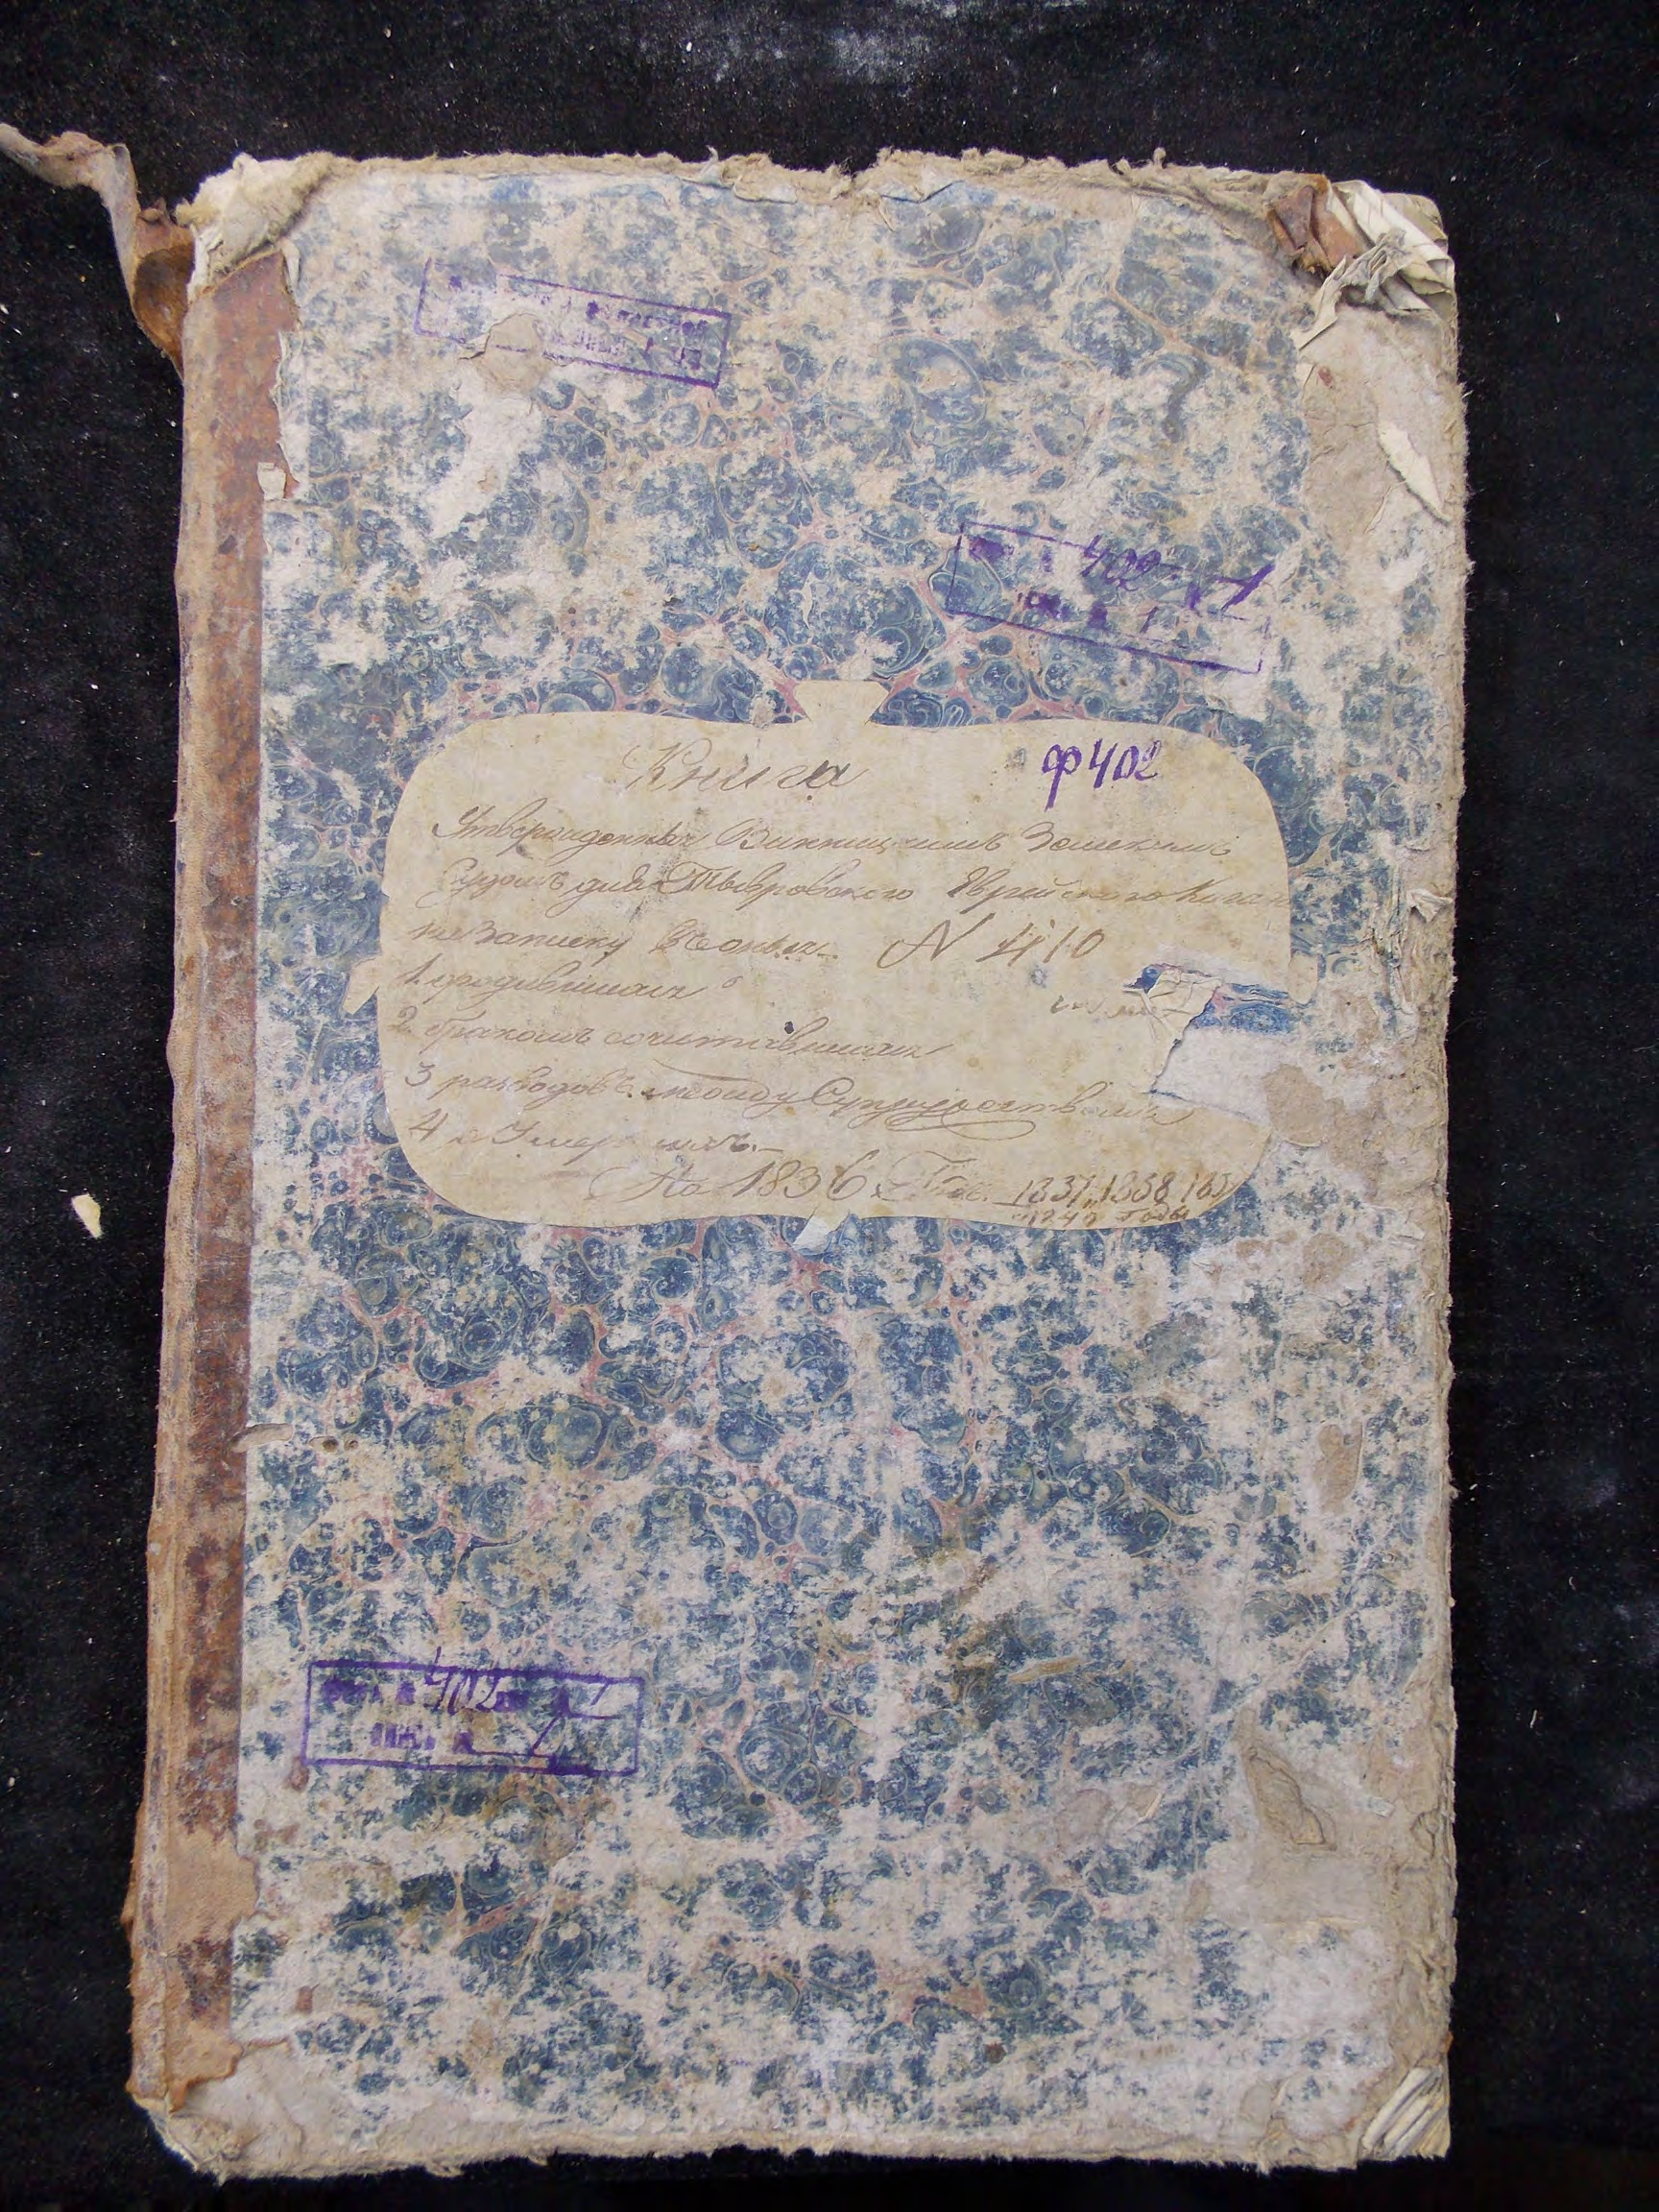 402 1
1
Книга
ф 402
Утвержденная Винницкимъ Земскимъ
Судомъ для Тывровскаго Еврейского Кагала
на Записку въ оныхъ N 410
1. родившихся
2. бракомъ сочитавшихся
3 разводовъ между Супружествами
4 Умерших.
На 1836 Годъ. 1837, 1838 183
1840 годы
402 1
опись № 1